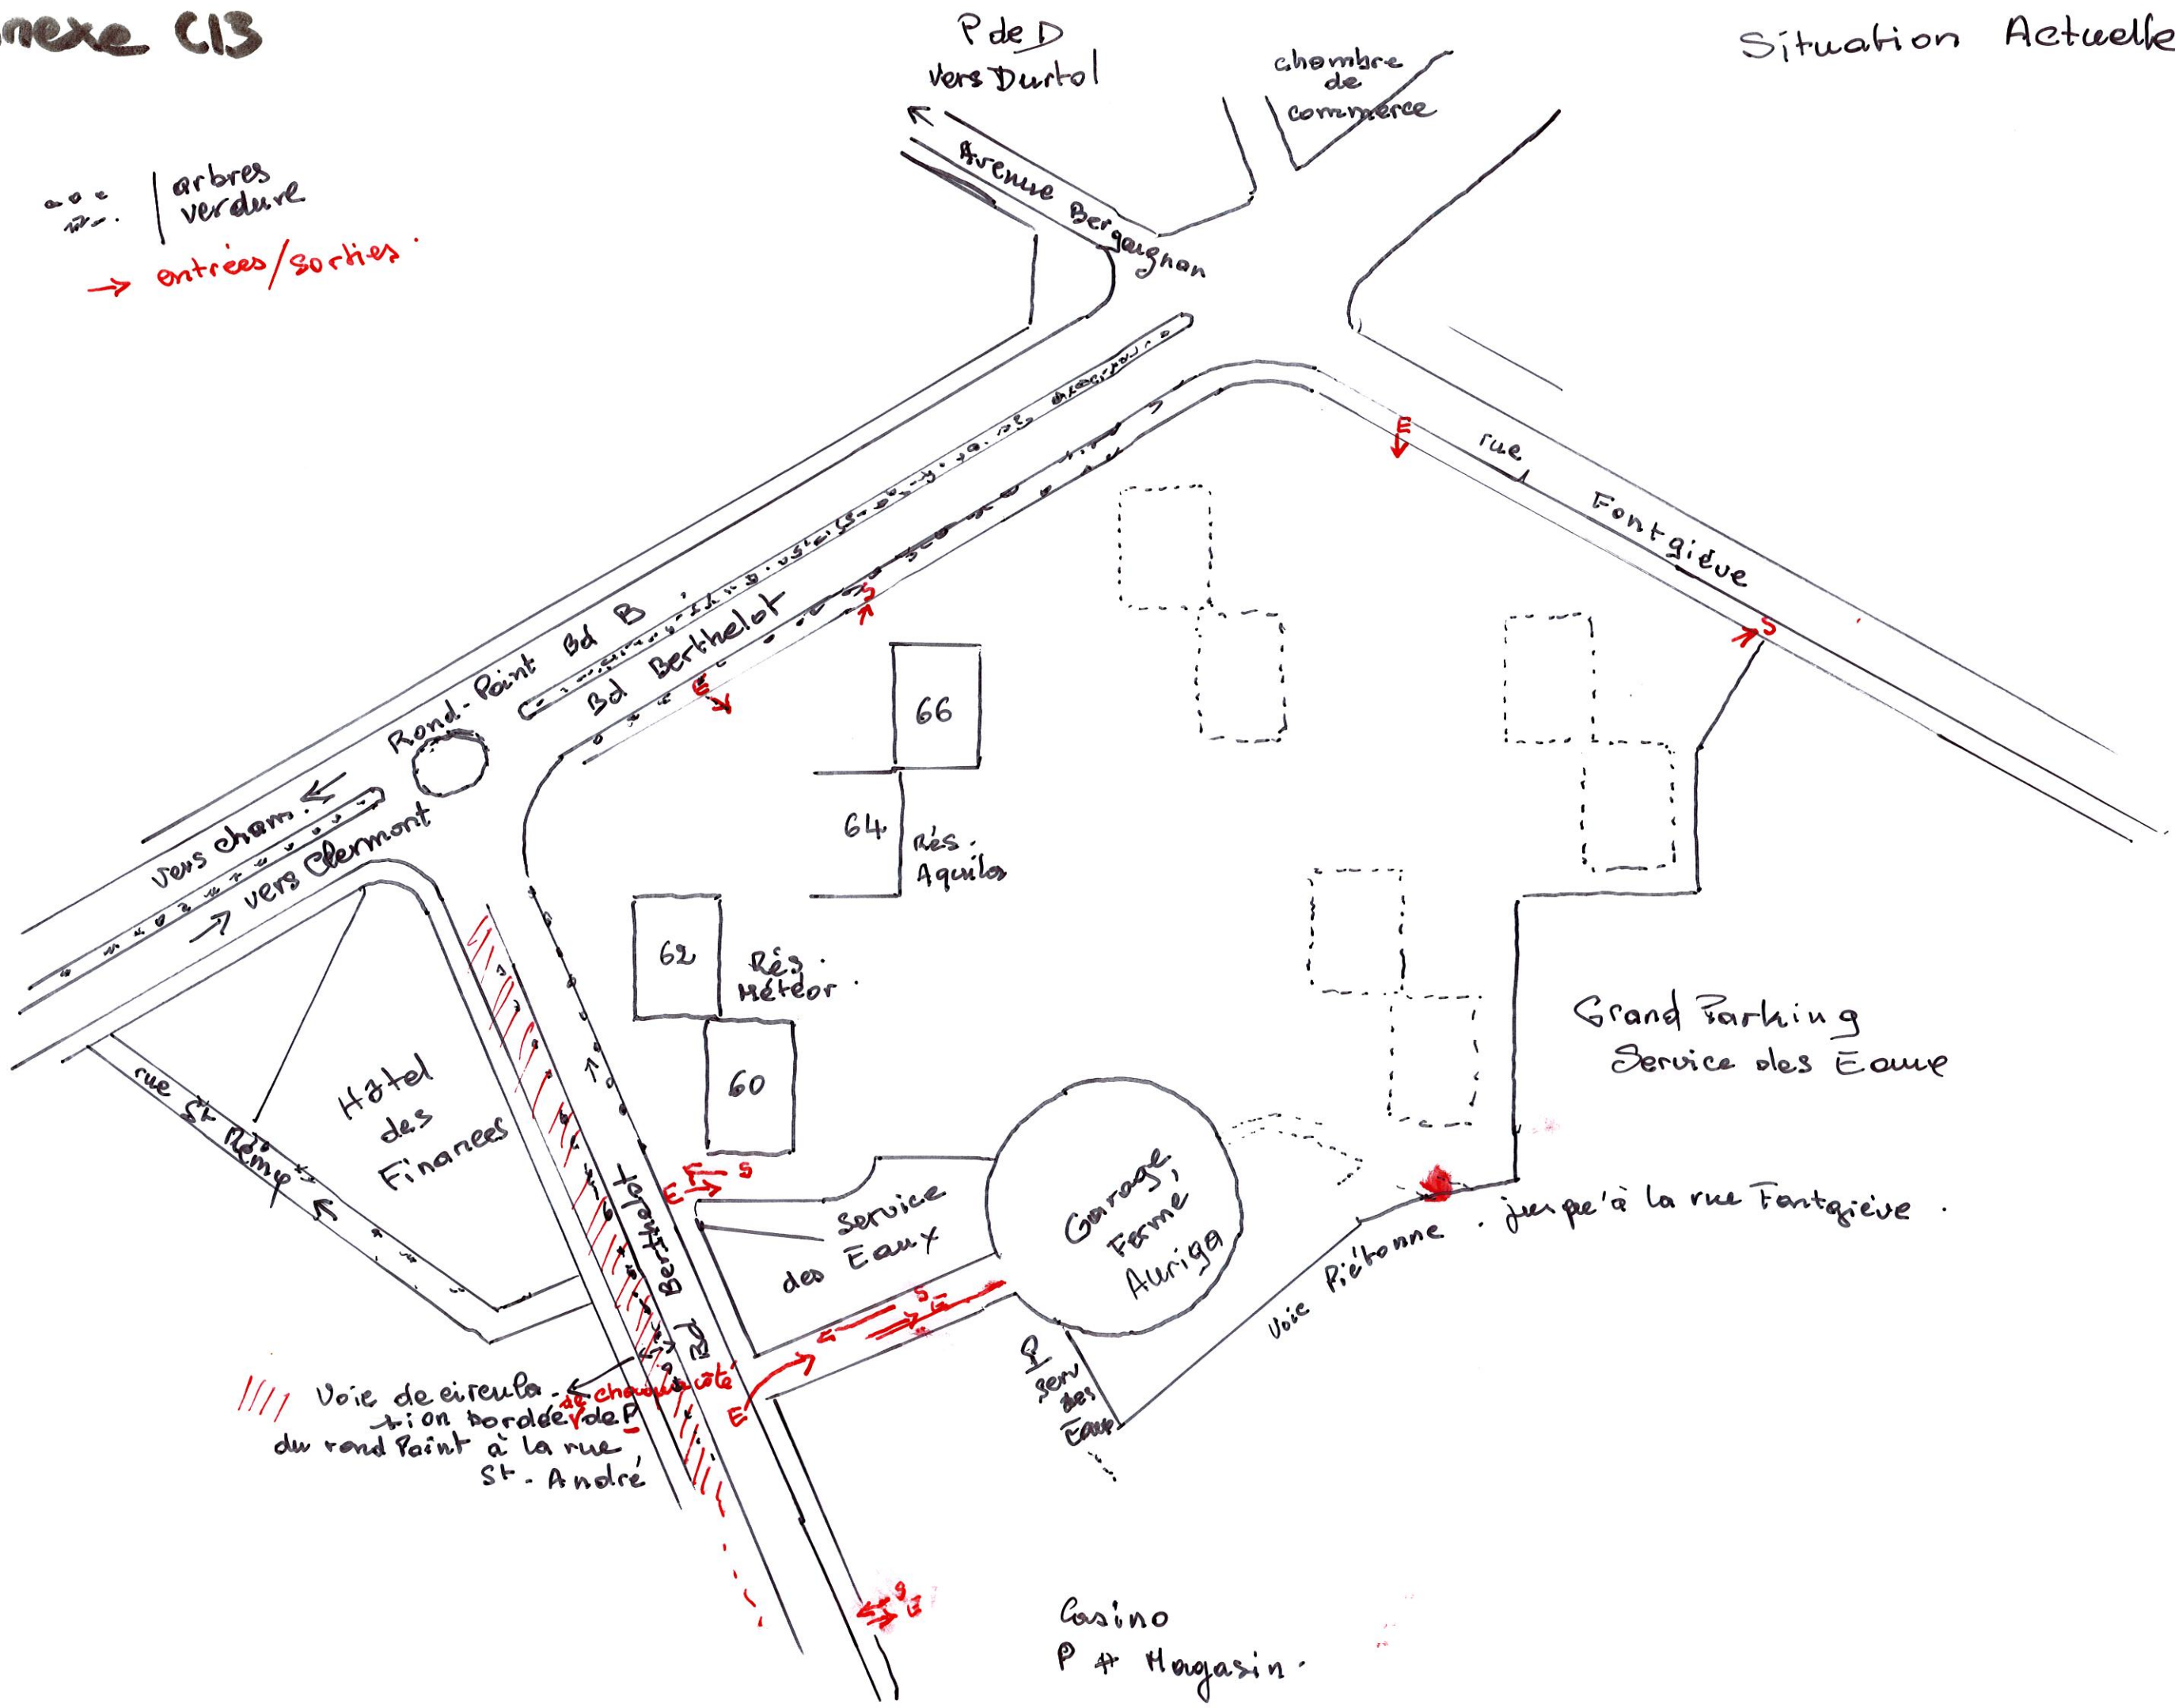 nnexe C13
Situation Actuelle
P de D
vers Durtol
chambre
de
commerce
arbres
verdure
→ entrées/sorties.
Avenue Bergougnan
E
rue Fontgiève
S
S
E
Rond-Point Bd B
Bd Berthelot
66
64
Rés.
Aquilon
vers Cham.
vers Clermont
62
Rés.
Météor.
60
Grand Parking
Service des Eaux
rue St Rémy
Hôtel
des
Finances
S
E
Service
des Eaux
Garage
Fermé
Auriga
Voie Piétonne. jusqu'à la rue Fontgiève.
Bd Berthelot
S
E
E
P
Serv
des
Eaux
Voie de circula-
tion bordée de chaque côté de P
du rond Point à la rue
St-André
S
E
Casino
P + Magasin.